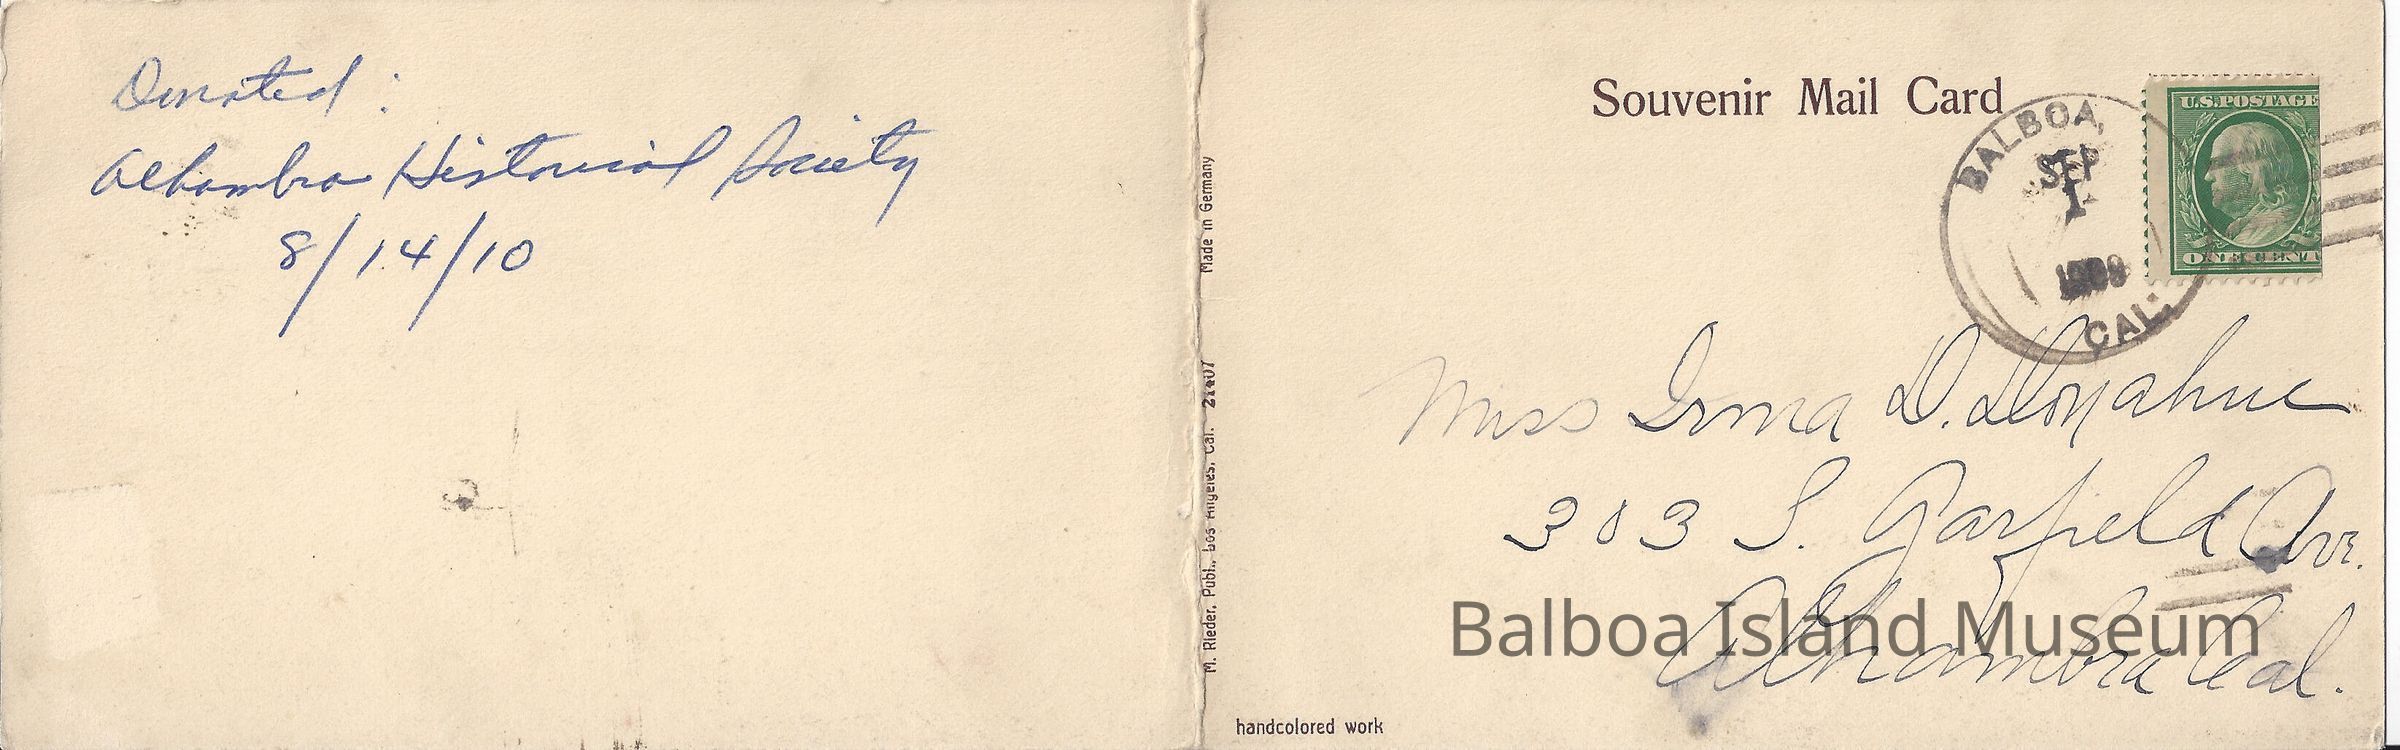 Donated:
Alhambra Historical Society
8/14/10
Made in Germany
M. Rieder, Publ., Los Angeles, Cal.
Souvenir Mail Card
BALBOA,
SEP
1
CAL.
U.S. POSTAGE
ONE CENT
Miss Irma D. Donahue
303 S. Garfield Ave.
Alhambra Cal.
Balboa Island Museum
handcolored work